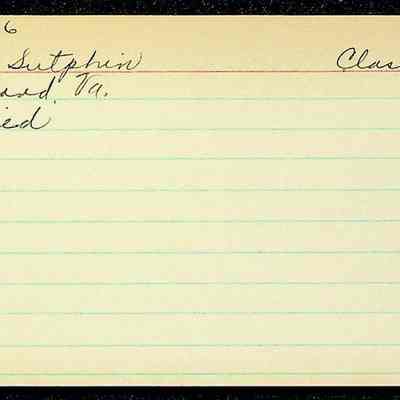 6
Sutphin Clas
and, Va.
ied